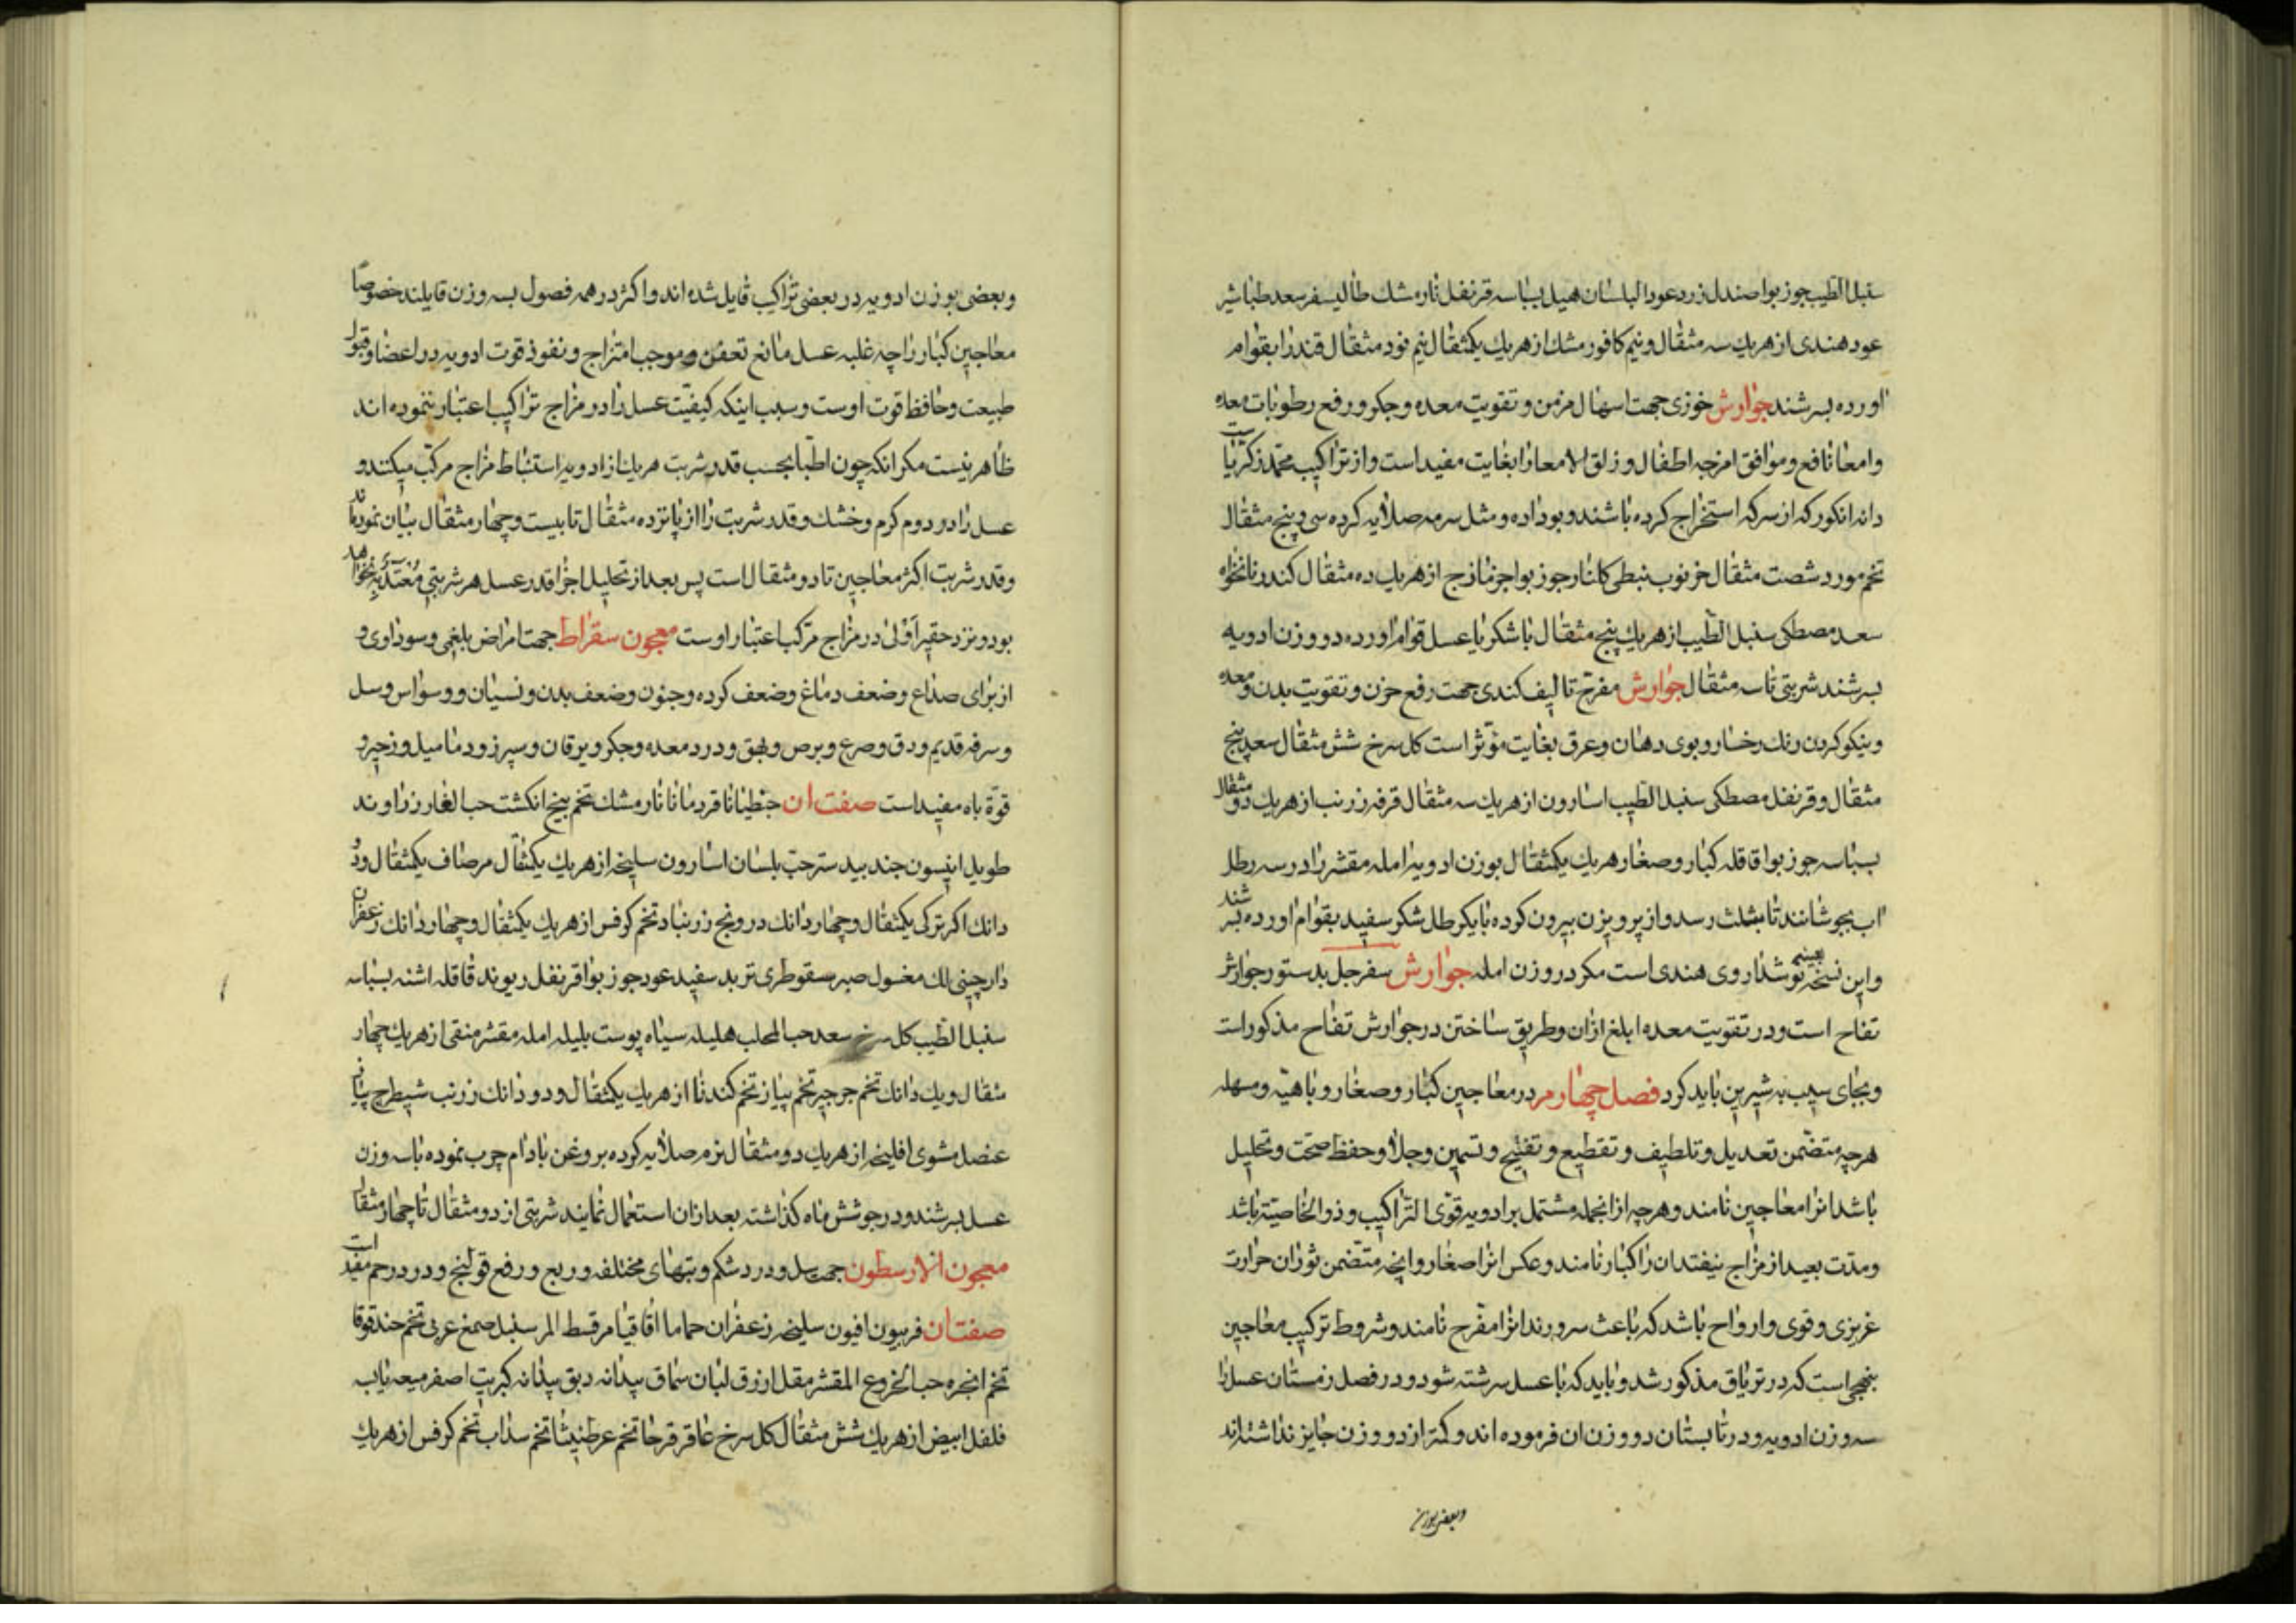 سنبل الطیب جوز بوا صندل زرد عود البلسان هیل بسباسه قرنفل نارمشك طالیسفر سعد طباشیر
عود هندی از هریك سه مثقال و نیم کافور مشك از هریك یکمثقال نیم نود مثقال قند را بقوام
اورده بسرشند جوارش خوزی جهت اسهال مزمن و تقویت معده و جکر و رفع رطوبات معده
و امعا نافع و موافق امزجه اطفال و زلق الامعا را بغایت مفید است و از تراکیب محمد زکریا ست
دانه انکور که از سرکه استخراج کرده باشند و بو داده و مثل سرمه صلایه کرده سی و پنج مثقال
تخم مورد شصت مثقال خرنوب نبطی کلنار جوز بوا جزمازج از هریك ده مثقال کندر نانخواه
سعد مصطکی سنبل الطیب از هریك پنج مثقال با شکر یا عسل قوام اورده دو وزن ادویه
بسرشند شربتی تا سه مثقال جوارش مفرح تالیف کندی جهت رفع حزن و تقویت بدن و معده
و نیکو کردن رنك رخسار و بوی دهان و عرق بغایت مؤثر است کل سرخ شش مثقال سعد پنج
مثقال و قرنفل مصطکی سنبل الطیب اسارون از هریك سه مثقال قرفه زرنب از هریك دو مثقال
بسباسه جوز بوا قاقله کبار و صغار هریك یکمثقال بوزن ادویه امله مقشر را در سه رطل
اب بجوشانند تا بثلث رسد و از پرویزن بیرون کرده با یکرطل شکر سفید بقوام اورده بسرشند
و این نسخه بعینه نوشداروی هندی است مکر در وزن امله جوارش سفرجل بدستور جوارش
تفاح است و در تقویت معده ابلغ ازان و طریق ساختن در جوارش تفاح مذکور است
و بجای سیب به شیرین باید کرد فصل چهارم در معاجین کبار و صغار و باهیه و مسهله
هرچه متضمن تعدیل و تلطیف و تقطیع و تفتیح و تسمین و جلا و حفظ صحت و تحلیل
باشد انرا معاجین نامند و هرچه از انجمله مشتمل بر ادویه قوی التراکیب و ذو الخاصیته باشد
و مدت بعید از مزاج نیفتد ان را کبار نامند و عکس انرا صغار و انچه متضمن ثوران حرارت
غریزی و قوی و ارواح باشد که باعث سرورند انرا مفرح نامند و شروط ترکیب معاجین
بنهجی است که در تریاق مذکور شد و باید که با عسل سرشته شود و در فصل زمستان عسل را
سه وزن ادویه و در تابستان دو وزن ان فرموده اند و کمتر از دو وزن جایز نداشته اند
و بعضی بوزن
و بعضی بوزن ادویه در بعضی تراکیب قایل شده اند و اکثر در همه فصول بسه وزن قایلند خصوصا
معاجین کبار را چه غلبه عسل مانع تعفن و موجب امتزاج و نفوذ قوت ادویه در اعضا و قبول
طبیعت و حافظ قوت اوست و سبب اینکه کیفیت عسل را در مزاج تراکیب اعتبار ننموده اند
ظاهر نیست مکر انکه چون اطبا بحسب قدر شربت هریك از ادویه استنباط مزاج مرکب میکنند و
عسل را در دوم کرم و خشك و قدر شربت را از پانزده مثقال تا بیست و چهار مثقال بیان نموده اند
و قدر شربت اکثر معاجین تا دو مثقال است پس بعد از تحلیل اجزا قدر عسل هر شربتی معتد به نخواهد
بود و نزد حقیر اولی در مزاج مرکب اعتبار اوست معجون سقراط جهت امراض بلغمی و سوداوی و
از برای صداع و ضعف دماغ و ضعف کرده و جنون و ضعف بدن و نسیان و وسواس و سل
و سرفه قدیم و دق و صرع و برص و بهق و درد معده و جکر و یرقان و سپرز و دمامیل و زحیر و
قوة باه مفید است صفت ان جنطیانا قردمانا نارمشك تخم پنج انکشت حب الغار زراوند
طویل انیسون جند بیدستر حب بلسان اسارون سلیخه از هریك یکمثقال مر صاف یکمثقال و دو
دانك اکر ترکی یکمثقال و چهار دانك درونج زرنباد تخم کرفس از هریك یکمثقال و چهار دانك زعفران
دارچینی لك مغسول صبر سقوطری تربد سفید عود جوز بوا قرنفل ریوند قاقله اشنه بسباسه
سنبل الطیب کل سرخ سعد حب المحلب هلیله سیاه پوست بلیله امله مقشر منقی از هریك چهار
مثقال و یك دانك تخم جرجیر تخم پیاز تخم کندنا از هریك یکمثقال و دو دانك زرنب شیطرج پیاز
عنصل مشوی افلنجه از هریك دو مثقال نرم صلایه کرده بروغن بادام چرب نموده با سه وزن
عسل بسرشند و در جو شش ماه کذاشته بعد ازان استعمال نمایند شربتی از دو مثقال تا چهار مثقال
معجون انلارسطون جهت سل و درد شکم و تبهای مختلفه و ربع و رفع قولنج و درد رحم مفید است
صفت ان فربیون افیون سلیخه زعفران حماما اقاقیا مر قسط المر سنبل صمغ عربی تخم حندقوقا
تخم انجره حب الخروع المقشر مقل ازرق لبان سماق بیدانه دبق بیدانه کبریت اصفر میعه یابسه
فلفل ابیض از هریك شش مثقال کل سرخ عاقرقرحا تخم عرطنیثا تخم سداب تخم کرفس از هریك